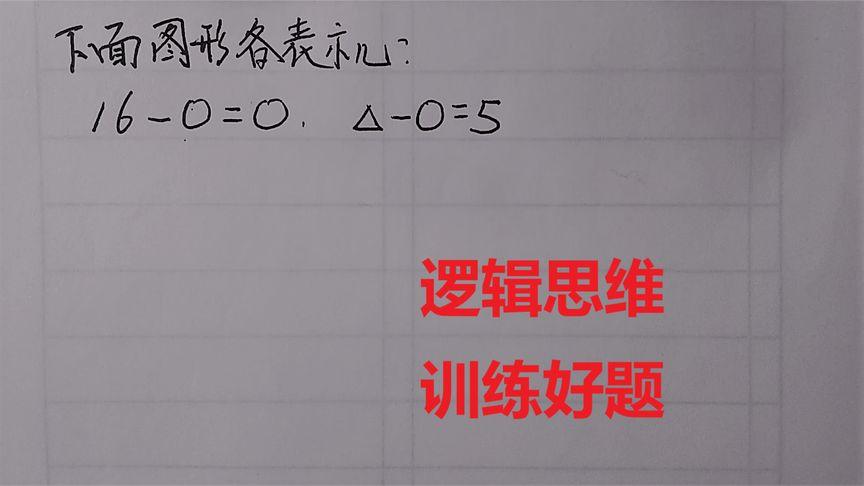 下面图形各表示几?
16-○=○. △-○=5
逻辑思维
训练好题